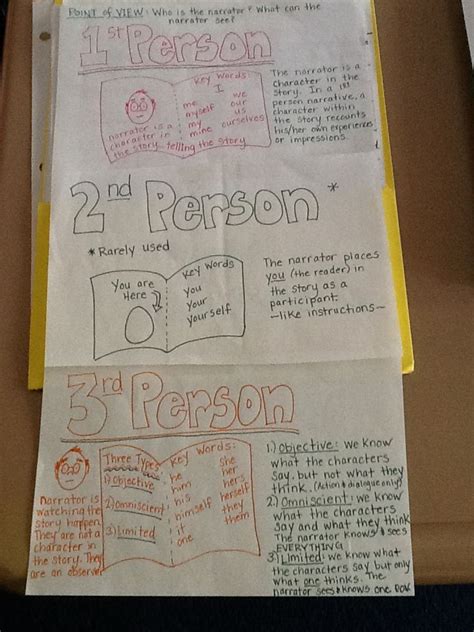 POINT of VIEW: Who is the narrator? What can the
narrator see?
1st Person
Key Words:
I
me we
myself our
my us
mine ourselves
narrator is a
character in
the story telling the story
The narrator is a
character in the
story. In a 1st
person narrative, a
character within
the story recounts
his/her own experiences
or impressions.
2nd Person *
* Rarely used
You are
Here
Key Words
You
Your
Yourself
The narrator places
you (the reader) in
the story as a
participant.
-like instructions-
3rd Person
Three Types
1) Objective
2) Omniscient
3) Limited
Key Words:
he she
him her
his hers
himself herself
it they
one them
Narrator is
watching the
story happen.
They are not a
character in
the story. They
are an observer
1.) Objective: we know
what the characters
say, but not what they
think. (Action & dialogue only)
2.) Omniscient: we know
what the characters
say and what they think.
The narrator knows & sees
EVERYTHING
3.) Limited: we know what
the characters say but only
what one thinks. The
narrator sees & knows one